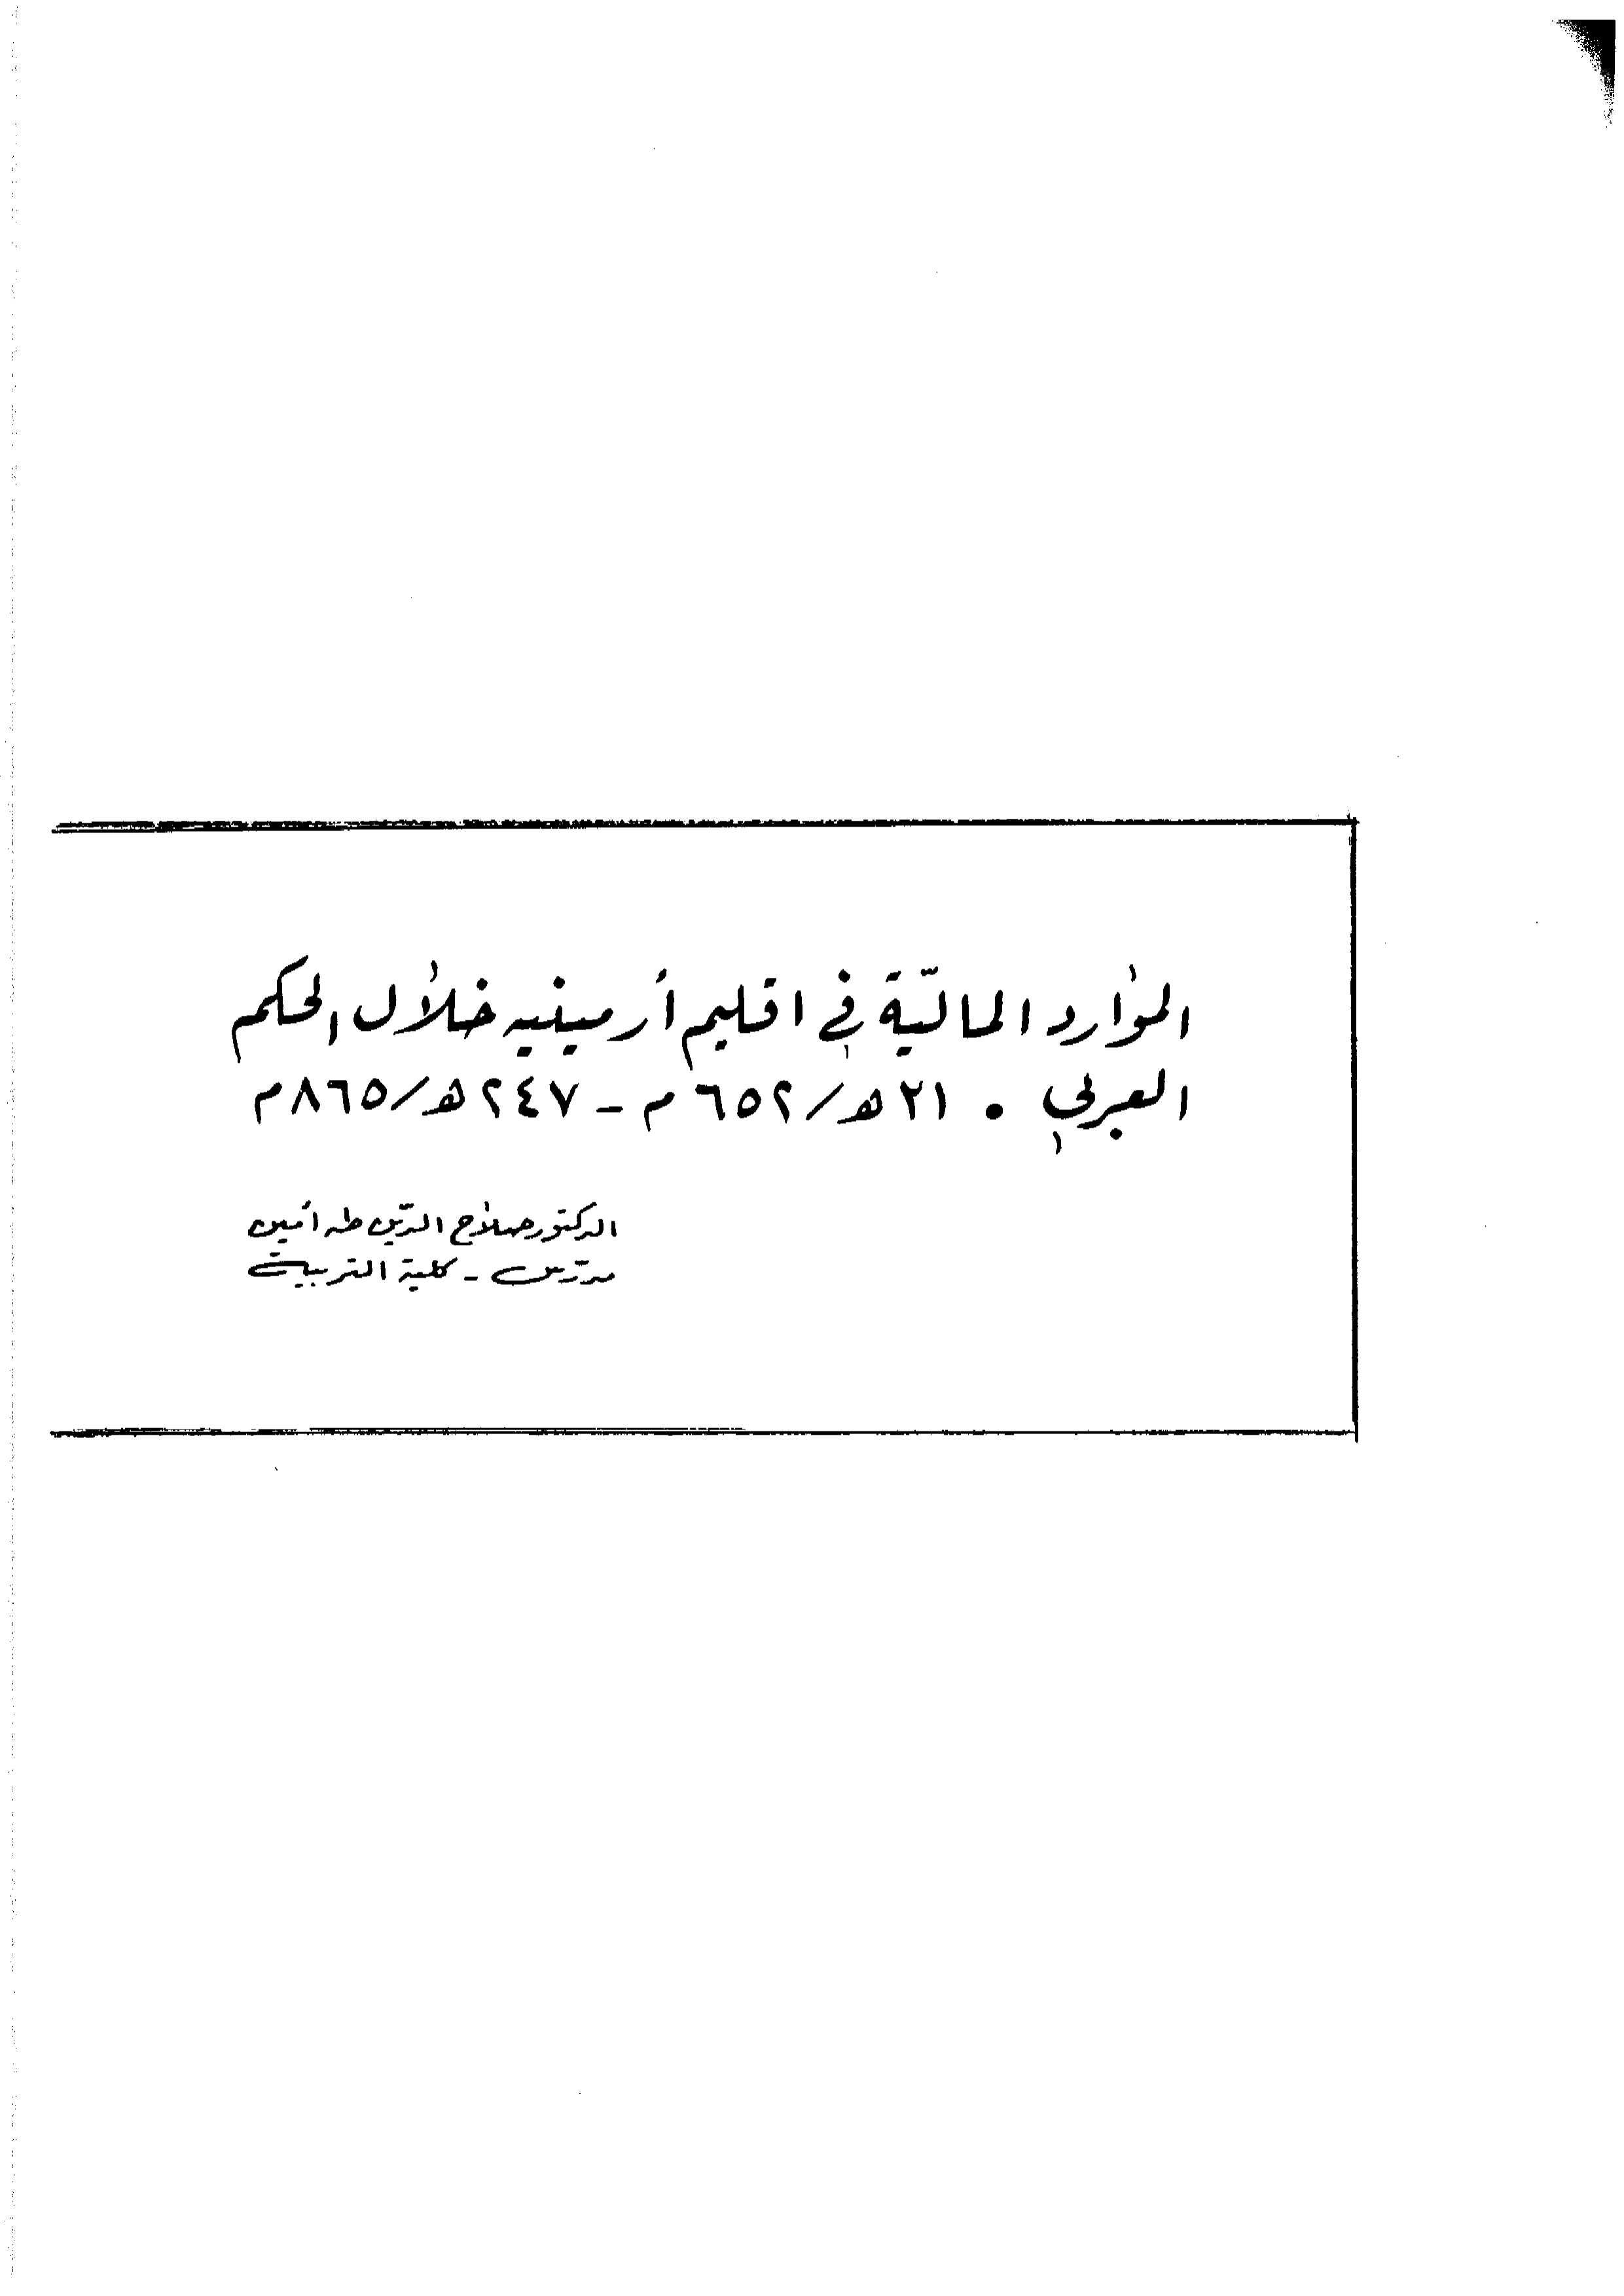 الموارد الماليّة في اقليم أرمينيه خلال الحكم
العربي . ٢١ هـ/ ٦٥٢ م - ٢٤٧ هـ/ ٨٦٥ م
الدكتور صلاح الدّين طه أمين
مدرّس - كلية التربية